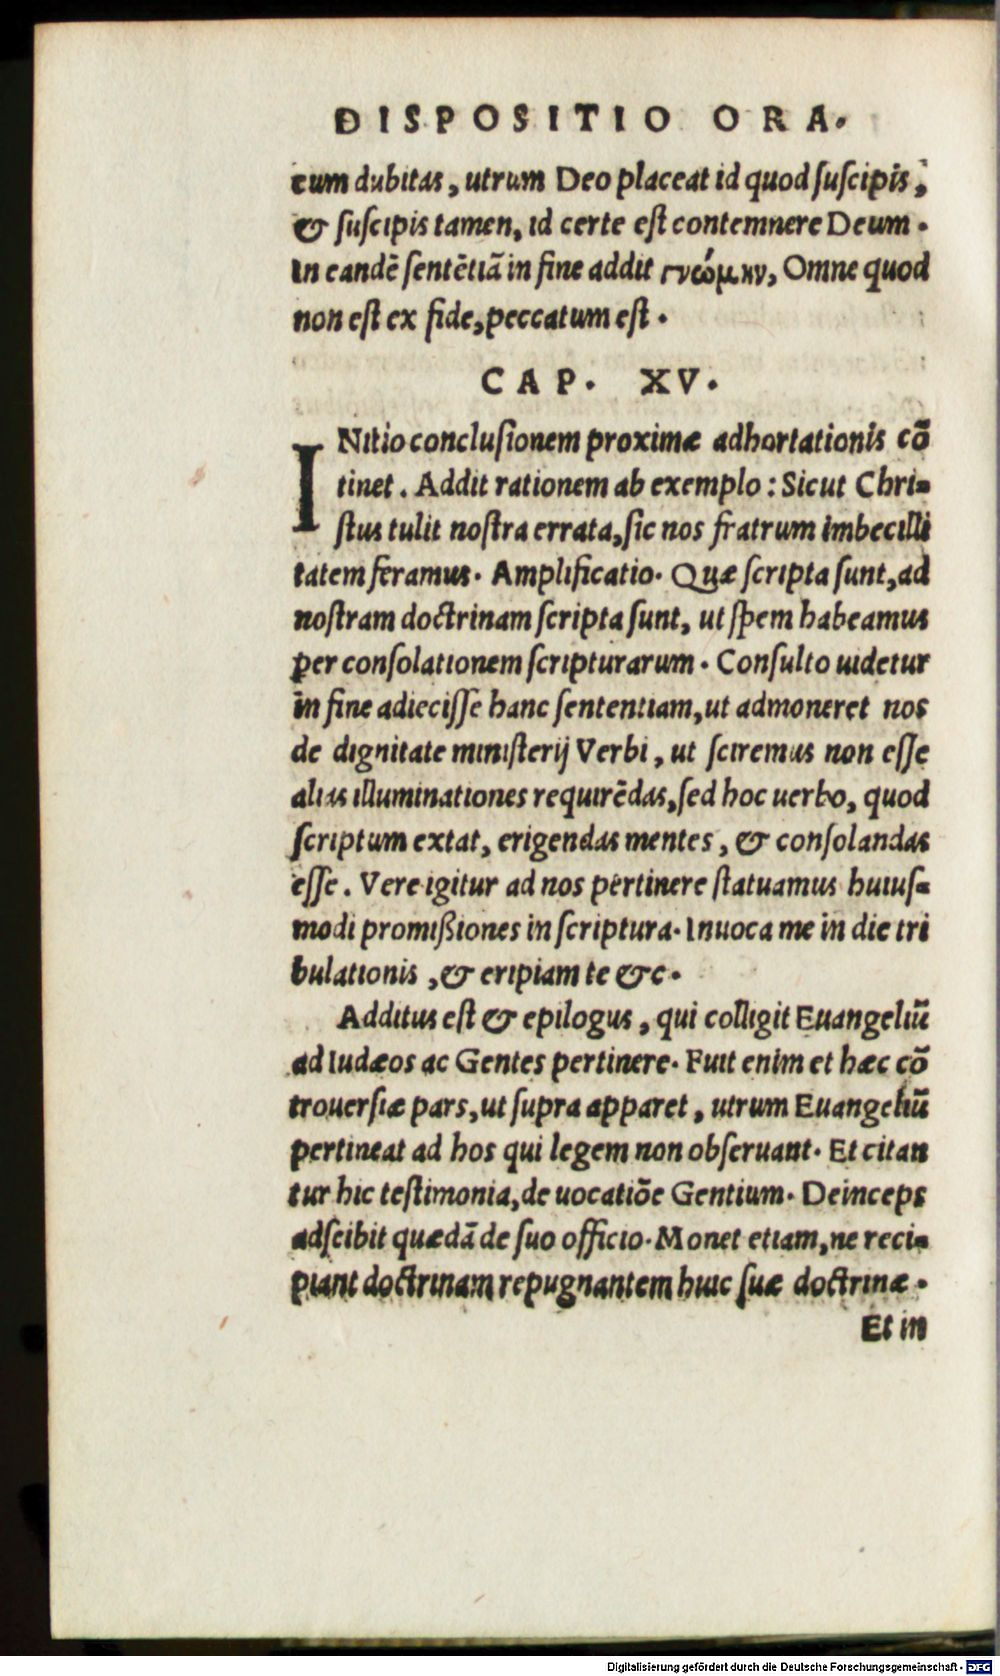 DISPOSITIO ORA.
cum dubitas, utrum Deo placeat id quod ſuſcipis,
& ſuſcipis tamen, id certe eſt contemnere Deum.
In eandē ſentētiā in fine addit γνώμην, Omne quod
non eſt ex fide, peccatum eſt.
CAP. XV.
INitio concluſionem proximæ adhortationis cō
tinet. Addit rationem ab exemplo: Sicut Chri-
ſtus tulit noſtra errata, ſic nos fratrum imbecilli
tatem feramus. Amplificatio. Quæ ſcripta ſunt, ad
noſtram doctrinam ſcripta ſunt, ut ſpem habeamus
per conſolationem ſcripturarum. Conſulto uidetur
in fine adieciſſe hanc ſententiam, ut admoneret nos
de dignitate miniſterij Verbi, ut ſciremus non eſſe
alias illuminationes requirēdas, ſed hoc uerbo, quod
ſcriptum extat, erigendas mentes, & conſolandas
eſſe. Vere igitur ad nos pertinere ſtatuamus huiuſ-
modi promißiones in ſcriptura. Inuoca me in die tri
bulationis, & eripiam te &c.
Additus eſt & epilogus, qui colligit Euangeliū
ad Iudæos ac Gentes pertinere. Fuit enim et hæc cō
trouerſiæ pars, ut ſupra apparet, utrum Euangeliū
pertineat ad hos qui legem non obſeruant. Et citan
tur hic teſtimonia, de uocatiōe Gentium. Deinceps
adſcibit quædā de ſuo officio. Monet etiam, ne reci-
piant doctrinam repugnantem huic ſuæ doctrinæ.
Et in
Digitalisierung gefördert durch die Deutsche Forschungsgemeinschaft - DFG